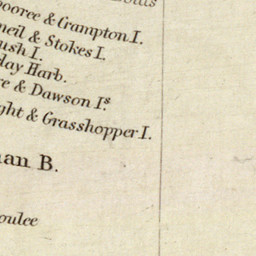 ooree & Crampton I.
neil & Stokes I.
ush I.
day Harb.
re & Dawson Iˢ.
ght & Grasshopper I.
an B.
oulee